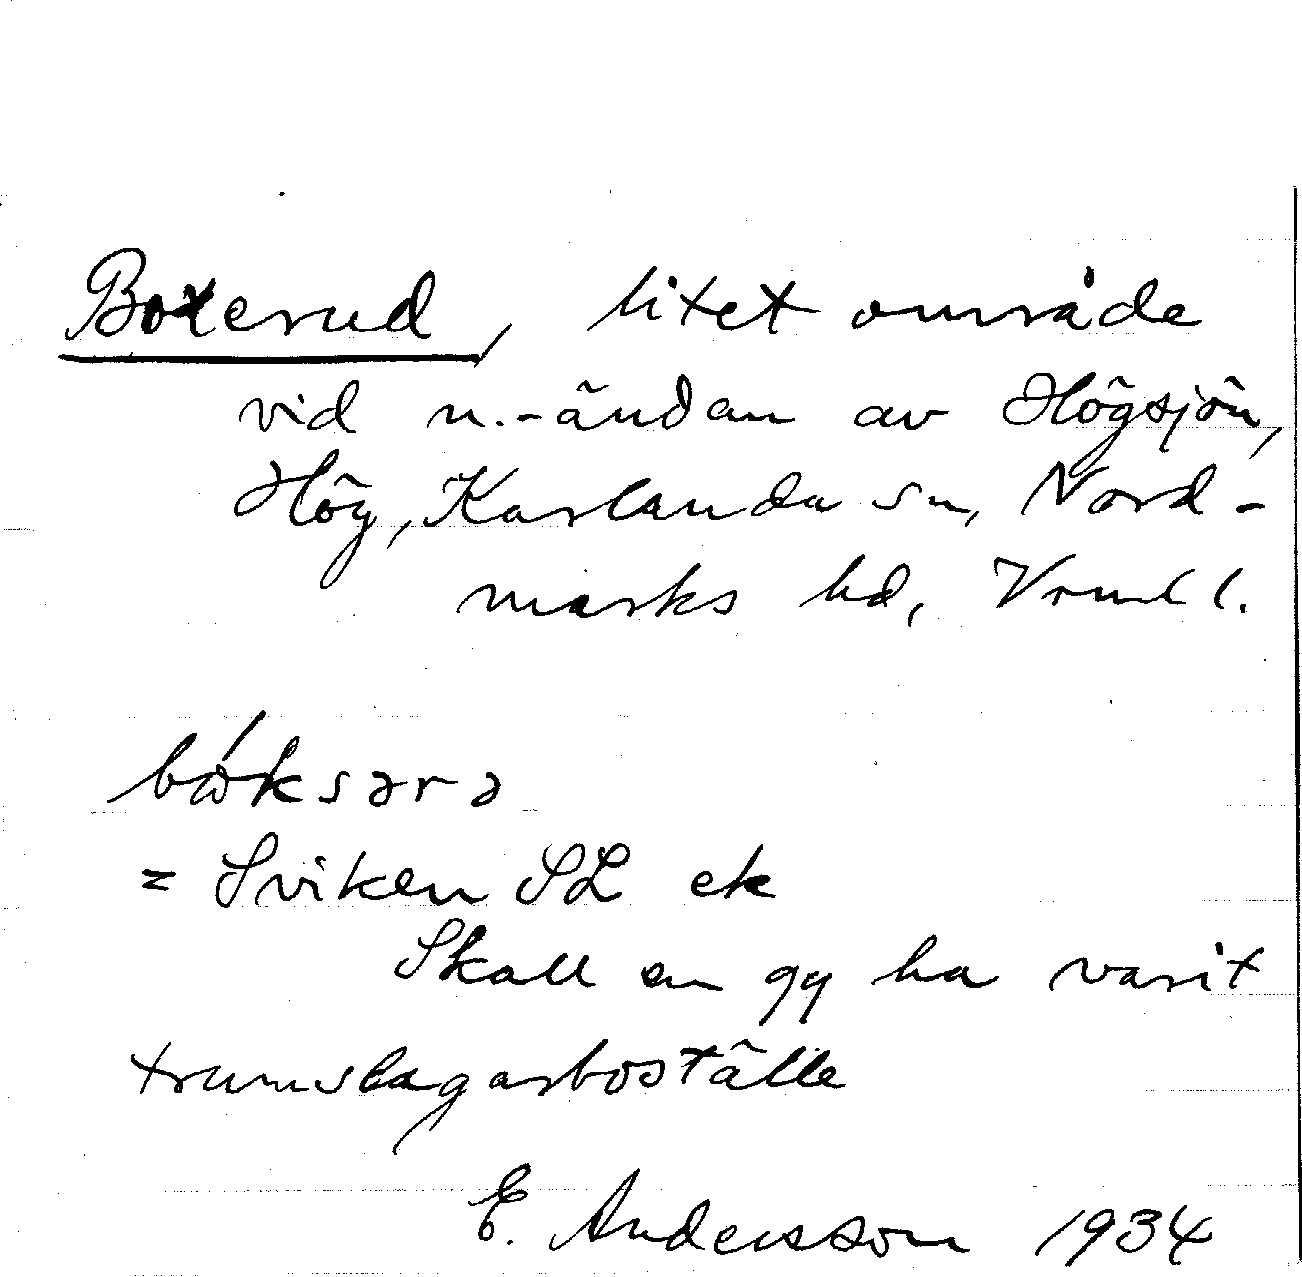 Boxerud, litet område
vid n.-ändan av Högsjön,
Hög, Karlanda sn, Nord-
marks hd, Vrml l.
bǿksərə
= Sviken SL ek
Skall en gg ha varit
trumslagarboställe
E. Andersson 1934